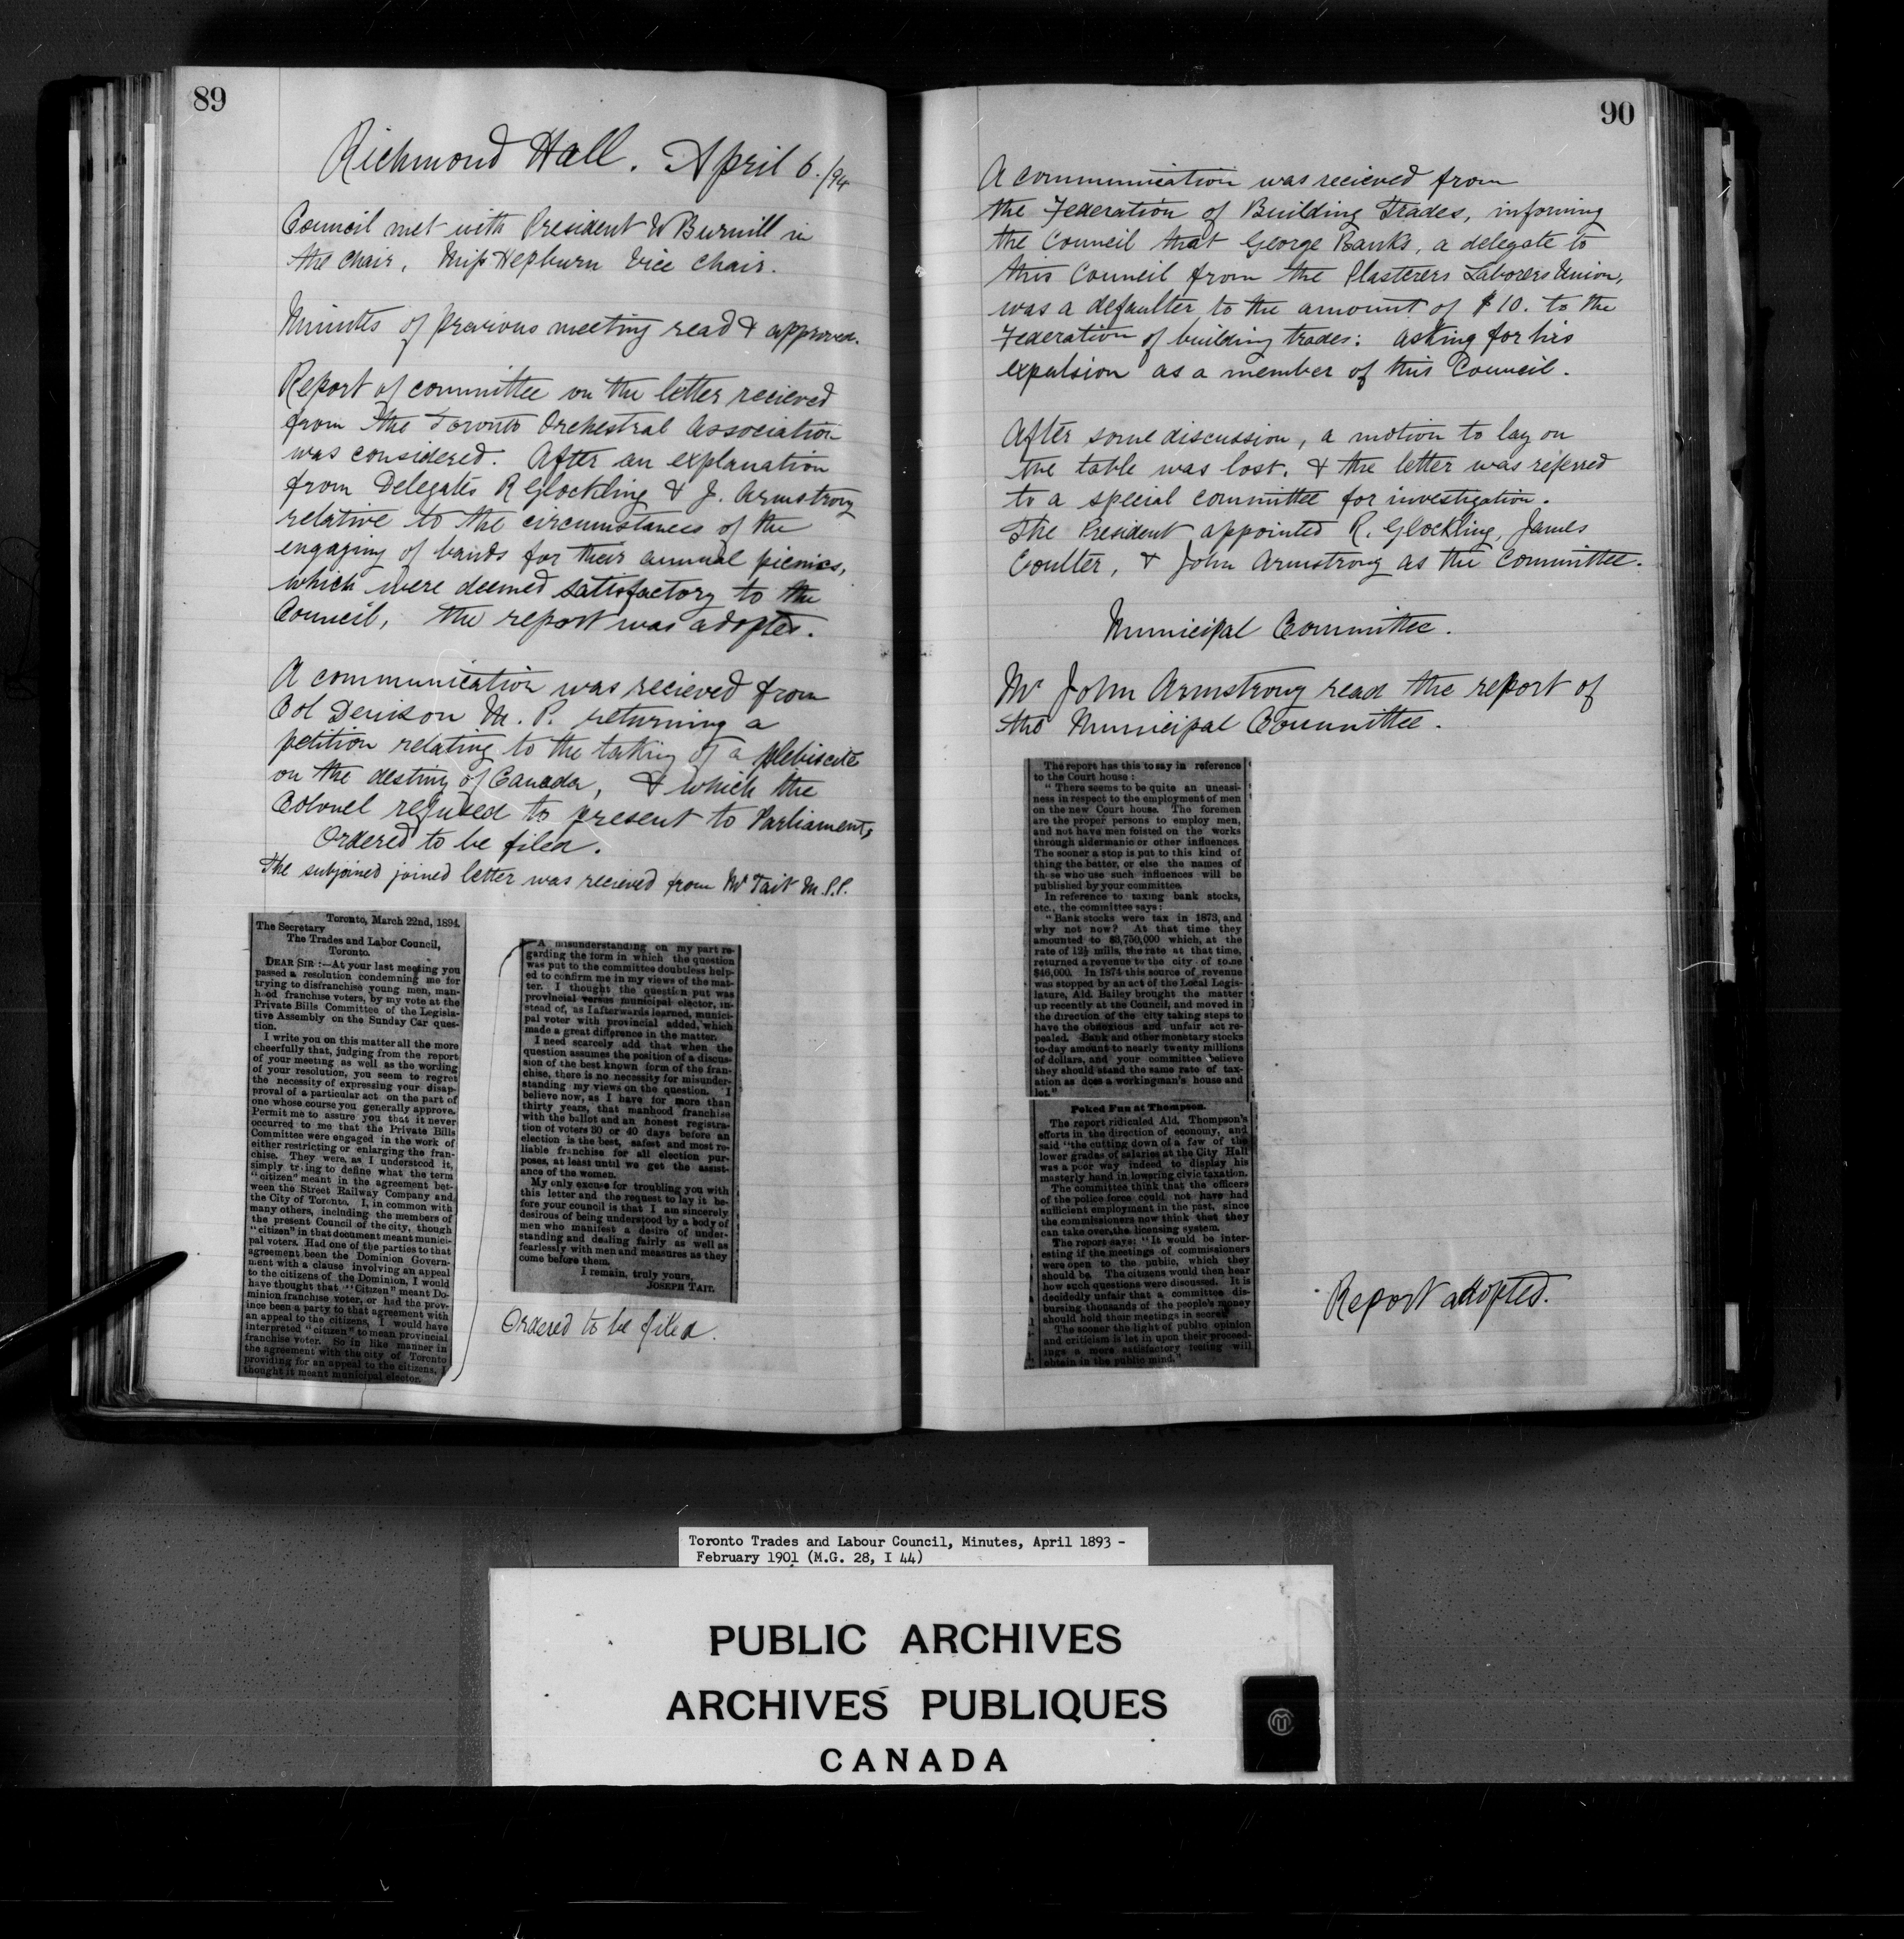 89
Richmond Hall. April 6./94
Council met with President W Burnill in
the chair, Miss Hepburn Vice chair.
Minutes of previous meeting read & approved.
Report of committee on the letter recieved
from the Toronto Orchestral Association
was considered. After an explanation
from Delegates R Glockling & J. Armstrong
relative to the circumstances of the
engaging of bands for their annual picnics,
which were deemed satisfactory to the
Council, the report was adopted.
A communication was recieved from
Col Denison M. P. returning a
petition relating to the taking of a plebiscite
on the destiny of Canada, & which the
Colonel refused to present to Parliament,
Ordered to be filed.
The subjoined joined letter was recieved from Mr Tait M.P.P.
Toronto, March 22nd, 1894.
The Secretary
The Trades and Labor Council,
Toronto.
DEAR SIR :—At your last meeting you
passed a resolution condemning me for
trying to disfranchise young men, man-
hood franchise voters, by my vote at the
Private Bills Committee of the Legisla-
tive Assembly on the Sunday Car ques-
tion.
I write you on this matter all the more
cheerfully that, judging from the report
of your meeting as well as the wording
of your resolution, you seem to regret
the necessity of expressing your disap-
proval of a particular act on the part of
one whose course you generally approve.
Permit me to assure you that it never
occurred to me that the Private Bills
Committee were engaged in the work of
either restricting or enlarging the fran-
chise. They were, as I understood it,
simply trying to define what the term
"citizen" meant in the agreement bet-
ween the Street Railway Company and
the City of Toronto. I, in common with
many others, including the members of
the present Council of the city, though
"citizen" in that document meant munici-
pal voters. Had one of the parties to that
agreement been the Dominion Govern-
ment with a clause involving an appeal
to the citizens of the Dominion, I would
have thought that "Citizen" meant Do-
minion franchise voter, or had the prov-
ince been a party to that agreement with
an appeal to the citizens, I would have
interpreted "citizen" to mean provincial
franchise voter. So in like manner in
the agreement with the city of Toronto
providing for an appeal to the citizens, I
thought it meant municipal elector.
A misunderstanding on my part re-
garding the form in which the question
was put to the committee doubtless help-
ed to confirm me in my views of the mat-
ter. I thought the question put was
provincial versus municipal elector, in-
stead of, as I afterwards learned, munici-
pal voter with provincial added, which
made a great difference in the matter.
I need scarcely add that when the
question assumes the position of a discus-
sion of the best known form of the fran-
chise, there is no necessity for misunder-
standing my views on the question. I
believe now, as I have for more than
thirty years, that manhood franchise
with the ballot and an honest registra-
tion of voters 30 or 40 days before an
election is the best, safest and most re-
liable franchise for all election pur-
poses, at least until we get the assist-
ance of the women.
My only excuse for troubling you with
this letter and the request to lay it be-
fore your council is that I am sincerely
desirous of being understood by a body of
men who manifest a desire of under-
standing and dealing fairly as well as
fearlessly with men and measures as they
come before them.
I remain, truly yours,
JOSEPH TAIT.
Ordered to be filed.
90
A communication was recieved from
the Federation of Building Trades, informing
the Council that George Banks, a delegate to
this Council from the Plasterers Laborers Union,
was a defaulter to the amount of $10. to the
Federation of building trades: asking for his
expulsion as a member of this Council.
After some discussion, a motion to lay on
the table was lost. & the letter was referred
to a special committee for investigation.
The President appointed R. Glockling, James
Coulter, & John Armstrong as the Committee.
Municipal Committee.
Mr John Armstrong read the report of
the Municipal Committee.
The report has this to say in reference
to the Court house :
"There seems to be quite an uneasi-
ness in respect to the employment of men
on the new Court house. The foremen
are the proper persons to employ men,
and not have men foisted on the works
through aldermanic or other influences.
The sooner a stop is put to this kind of
thing the better, or else the names of
those who use such influences will be
published by your committee.
In reference to taxing bank stocks,
etc., the committee says :
"Bank stocks were tax in 1873, and
why not now? At that time they
amounted to $3,750,000 which, at the
rate of 12½ mills, the rate at that time,
returned a revenue to the city of some
$46,000. In 1874 this source of revenue
was stopped by an act of the Local Legis-
lature, Ald. Bailey brought the matter
up recently at the Council, and moved in
the direction of the city taking steps to
have the obnoxious and unfair act re-
pealed. Bank and other monetary stocks
to-day amount to nearly twenty millions
of dollars, and your committee believe
they should stand the same rate of tax-
ation as does a workingman's house and
lot."
Poked Fun at Thompson.
The report ridiculed Ald. Thompson's
efforts in the direction of economy, and
said "the cutting down of a few of the
lower grades of salaries at the City Hall
was a poor way indeed to display his
masterly hand in lowering civic taxation.
The committee think that the officers
of the police force could not have had
sufficient employment in the past, since
the commissioners now think that they
can take over the licensing system.
The report says: "It would be inter-
esting if the meetings of commissioners
were open to the public, which they
should be. The citizens would then hear
how such questions were discussed. It is
decidedly unfair that a committee dis-
bursing thousands of the people's money
should hold their meetings in secret.
The sooner the light of public opinion
and criticism is let in upon their proceed-
ings a more satisfactory feeling will
obtain in the public mind."
Report adopted.
Toronto Trades and Labour Council, Minutes, April 1893 -
February 1901 (M.G. 28, I 44)
PUBLIC ARCHIVES
ARCHIVES PUBLIQUES
CANADA